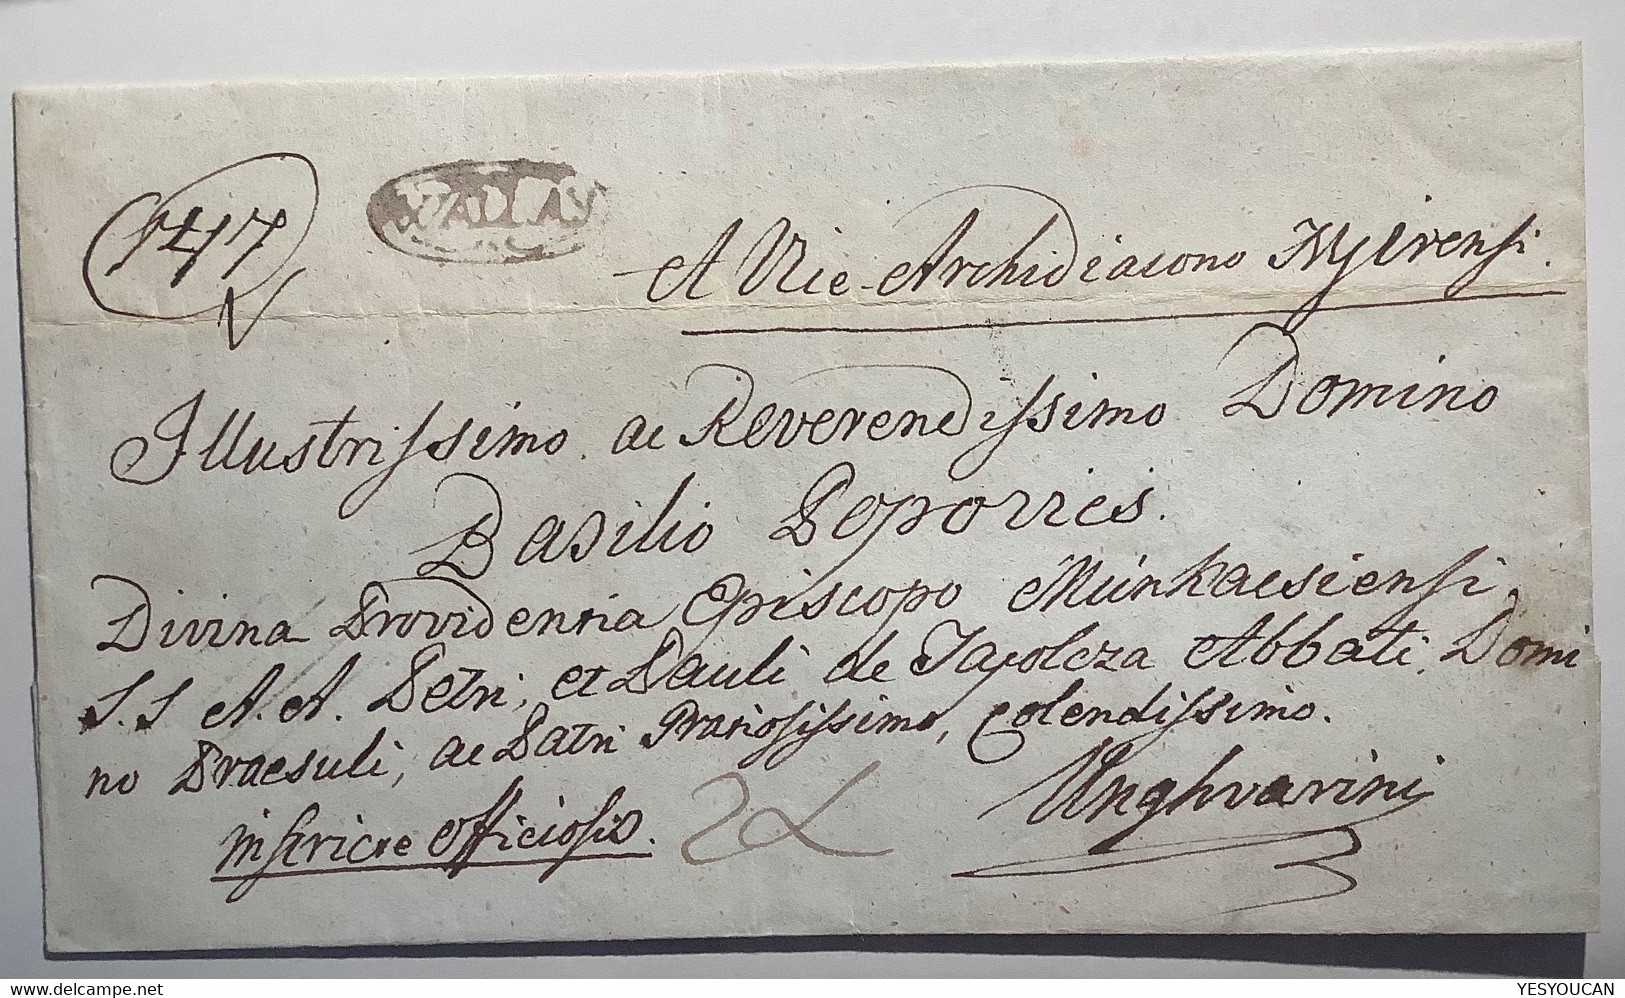 1417
A Vice-Archidiacono Nyirensi.
Illustrissimo ac Reverendissimo Domino
Basilio Popovics.
Divina Providentia Episcopo Munkacsiensi,
S.S A.A. Petri, et Pauli de Tapolcza Abbati, Domi
no Praesuli, ac Patri Gratiosissimo, Colendissimo.
officiosis.
Unghvarini
delcampe.net
YESYOUCAN